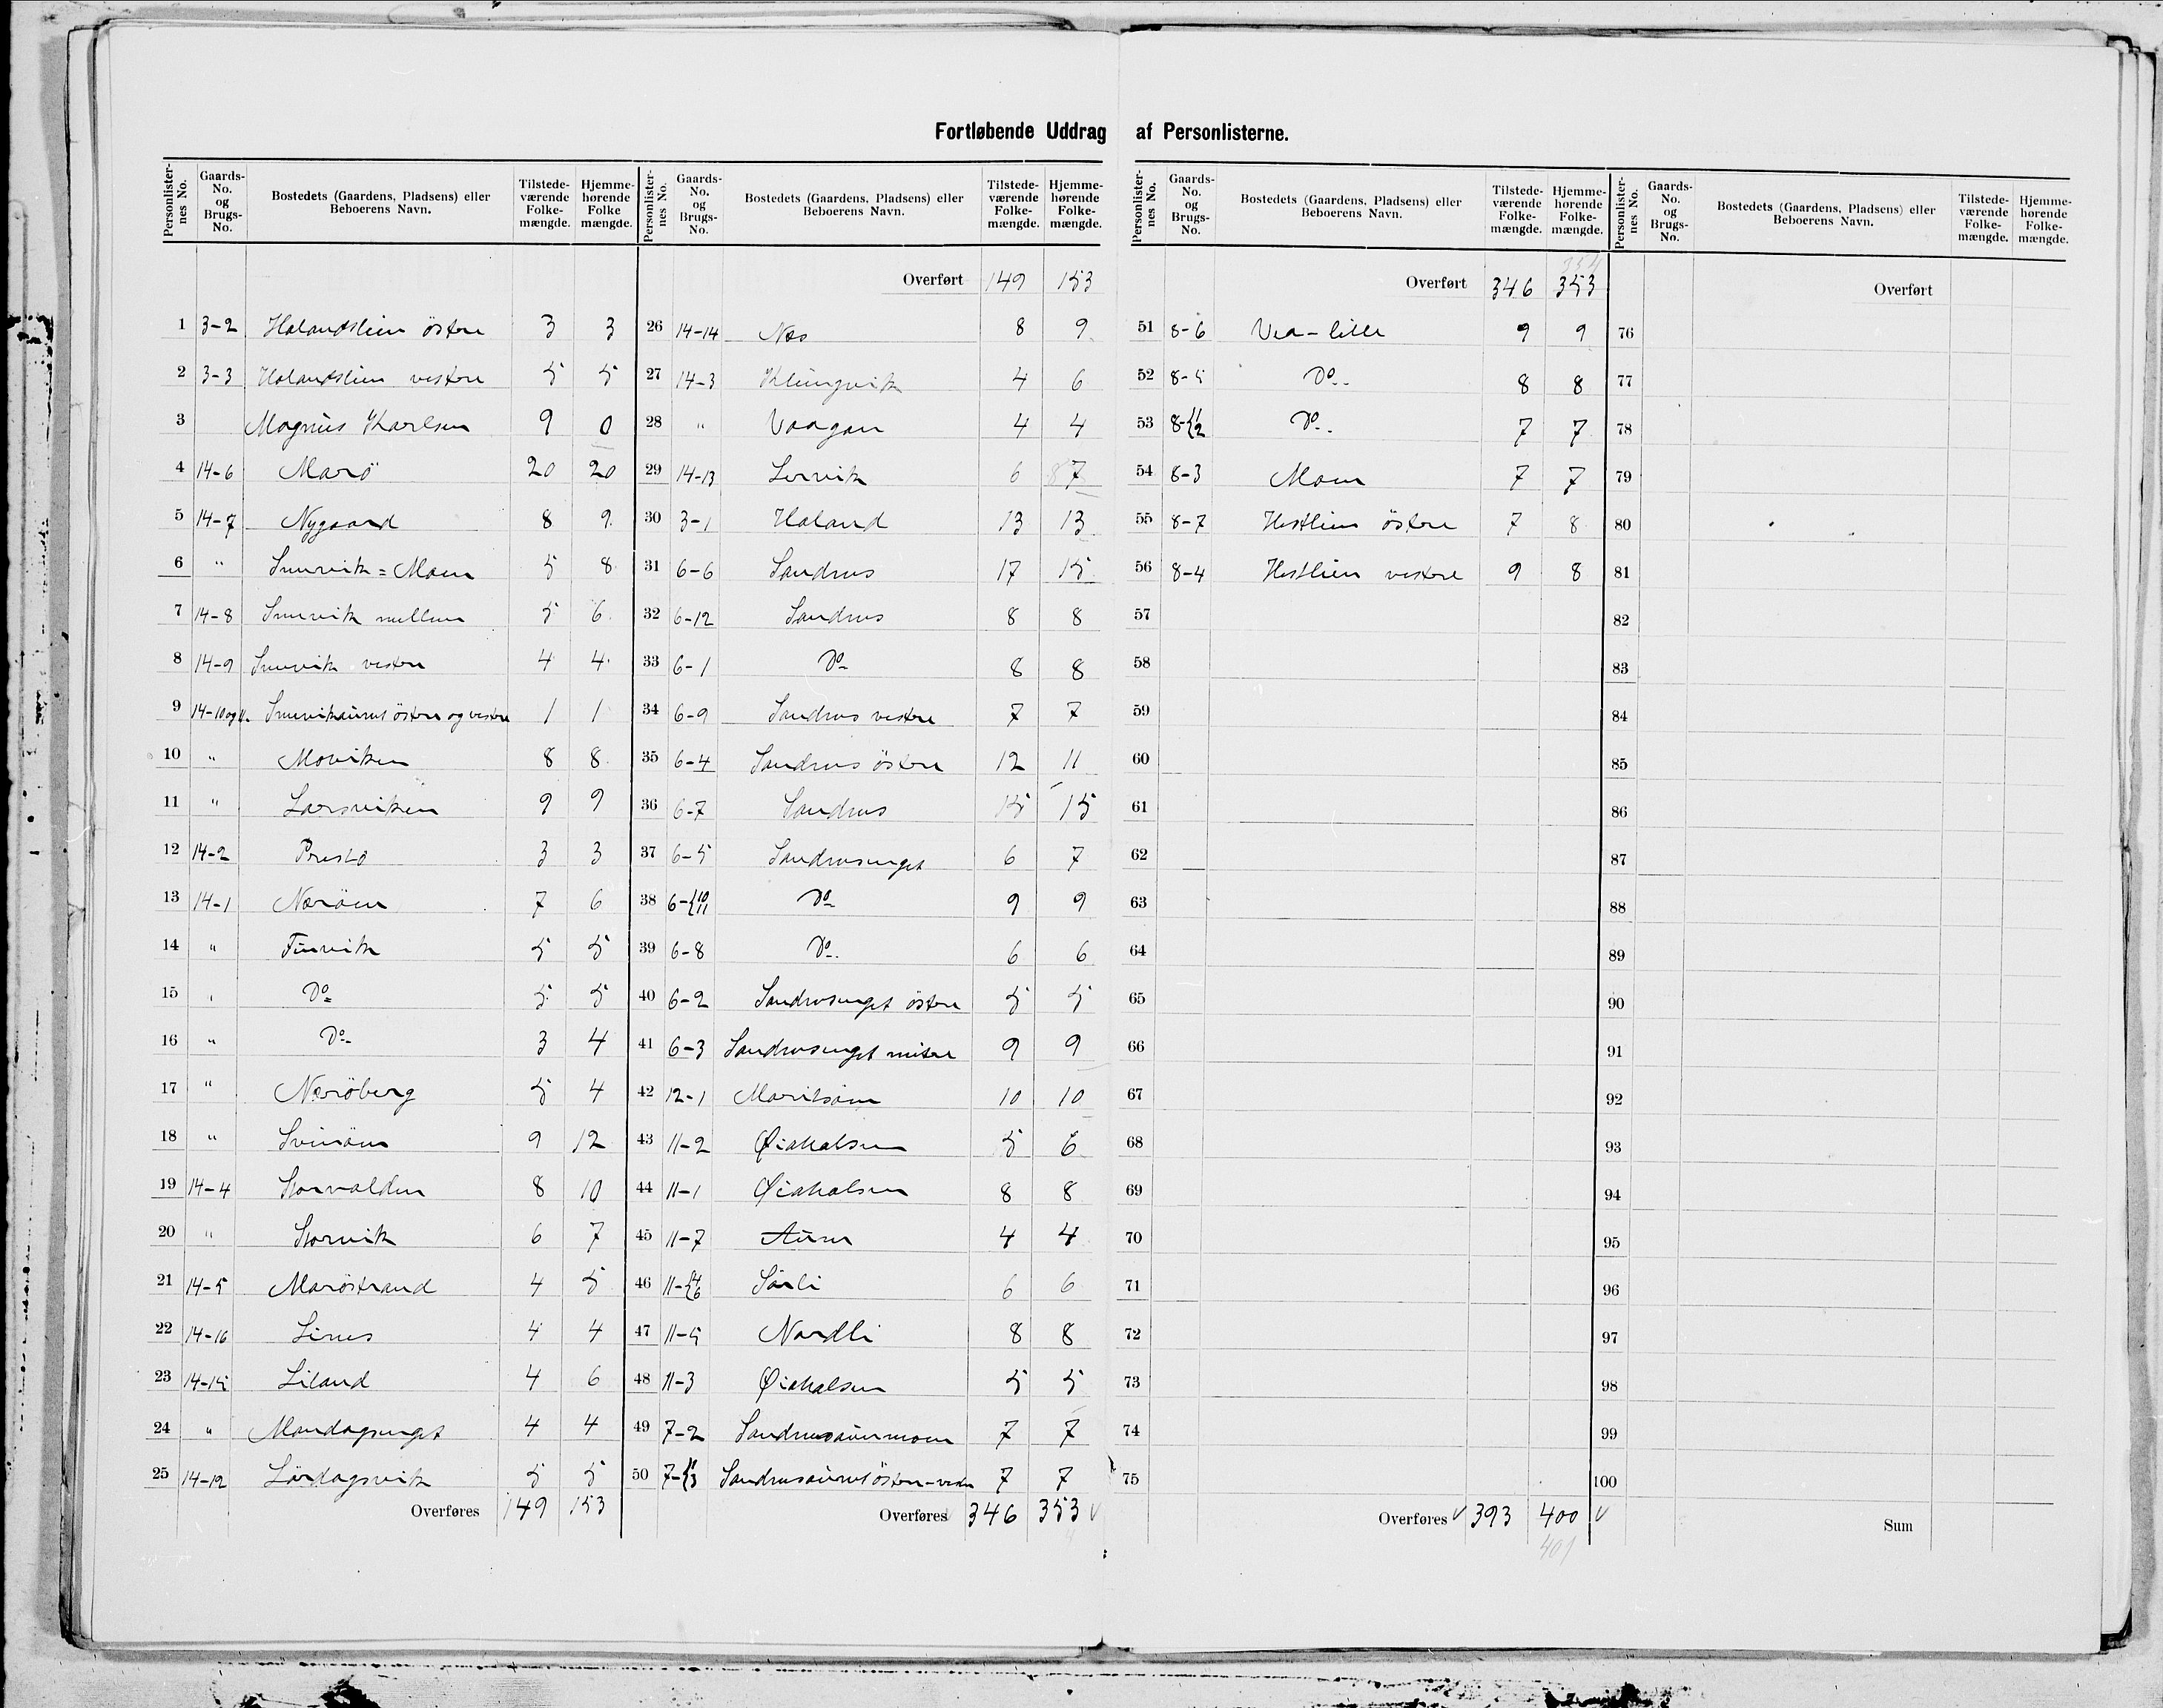 Fortløbende Uddrag af Personlisterne.
Personlister-nes No. Gaards-No. og Brugs-No. Bostedets (Gaardens, Pladsens) eller Beboerens Navn. Tilstede-værende Folke-mængde. Hjemme-hørende Folke mængde.
1 3-2 Halandslien östre 3 3
2 3-3 Halandslien vestre 5 5
3 Magnus Karlsen 9 0
4 14-6 Marö 20 20
5 14-7 Nygaard 8 9
6 " Smervik=Moen 5 8
7 14-8 Smervik mellem 5 6
8 14-9 Smervik vestre 4 4
9 14-10 og 11. Smervikauret östre og vestre 1 1
10 " Moviken 8 8
11 " Larsviken 9 9
12 14-2 Prestö 3 3
13 14-1 Naröen 7 6
14 " Finvik 5 5
15 " Do 5 5
16 " Do 3 4
17 " Naröberg 5 4
18 " Svinöen 9 12
19 14-4 Storvolden 8 10
20 " Storvik 6 7
21 14-5 Maröstrand 4 5
22 14-16 Lines 4 4
23 14-15 Liland 4 6
24 " Mandagsnget 4 4
25 14-12 Lördagsvik 5 5
Overføres 149 153
Personlister-nes No. Gaards-No. og Brugs-No. Bostedets (Gaardens, Pladsens) eller Beboerens Navn. Tilstede-værende Folke-mængde. Hjemme-hørende Folke-mængde.
Overført 149 153
26 14-14 Nes 8 9
27 14-3 Klungvik 4 6
28 " Vaagan 4 4
29 14-13 Lervik 6 7
30 3-1 Haland 13 13
31 6-6 Sandnes 17 15
32 6-12 Sandnes 8 8
33 6-1 Do 8 8
34 6-9 Sandnes vestre 7 7
35 6-4 Sandnes östre 12 11
36 6-7 Sandnes 15 15
37 6-5 Sandnesenget 6 7
38 6-{10 11 Do 9 9
39 6-8 Do 6 6
40 6-2 Sandnesenget östre 5 5
41 6-3 Sandnesenget mitre 9 9
42 12-1 10 10
43 11-2 Øiahalsen 5 6
44 11-1 Øiahalsen 8 8
45 11-7 Auren 4 4
46 11-{4 6 Sörli 6 6
47 11-5 Nordli 8 8
48 11-3 Øiahalsen 5 5
49 7-2 Sandnesaurmoen 7 7
50 7-{1 3 Sandnesauret östre-vestre 7 7
Overføres 346 353 v
Personlister-nes No. Gaards-No. og Brugs-No. Bostedets (Gaardens, Pladsens) eller Beboerens Navn. Tilstede-værende Folke-mængde. Hjemme-hørende Folke-mængde.
354
Overført 346 353
51 8-6 Vea-lille 9 9
52 8-5 Do 8 8
53 8-{1 2 Do 7 7
54 8-3 Moen 7 7
55 8-7 Hestlien östre 7 8
56 8-4 Hestlien vestre 9 8
57
58
59
60
61
62
63
64
65
66
67
68
69
70
71
72
73
74
75
Overføres v 393 400 v
401
Personlister-nes No. Gaards-No. og Brugs-No. Bostedets (Gaardens, Pladsens) eller Beboerens Navn. Tilstede-værende Folke-mængde. Hjemme-hørende Folke-mængde.
Overført
76
77
78
79
80
81
82
83
84
85
86
87
88
89
90
91
92
93
94
95
96
97
98
99
100
Sum